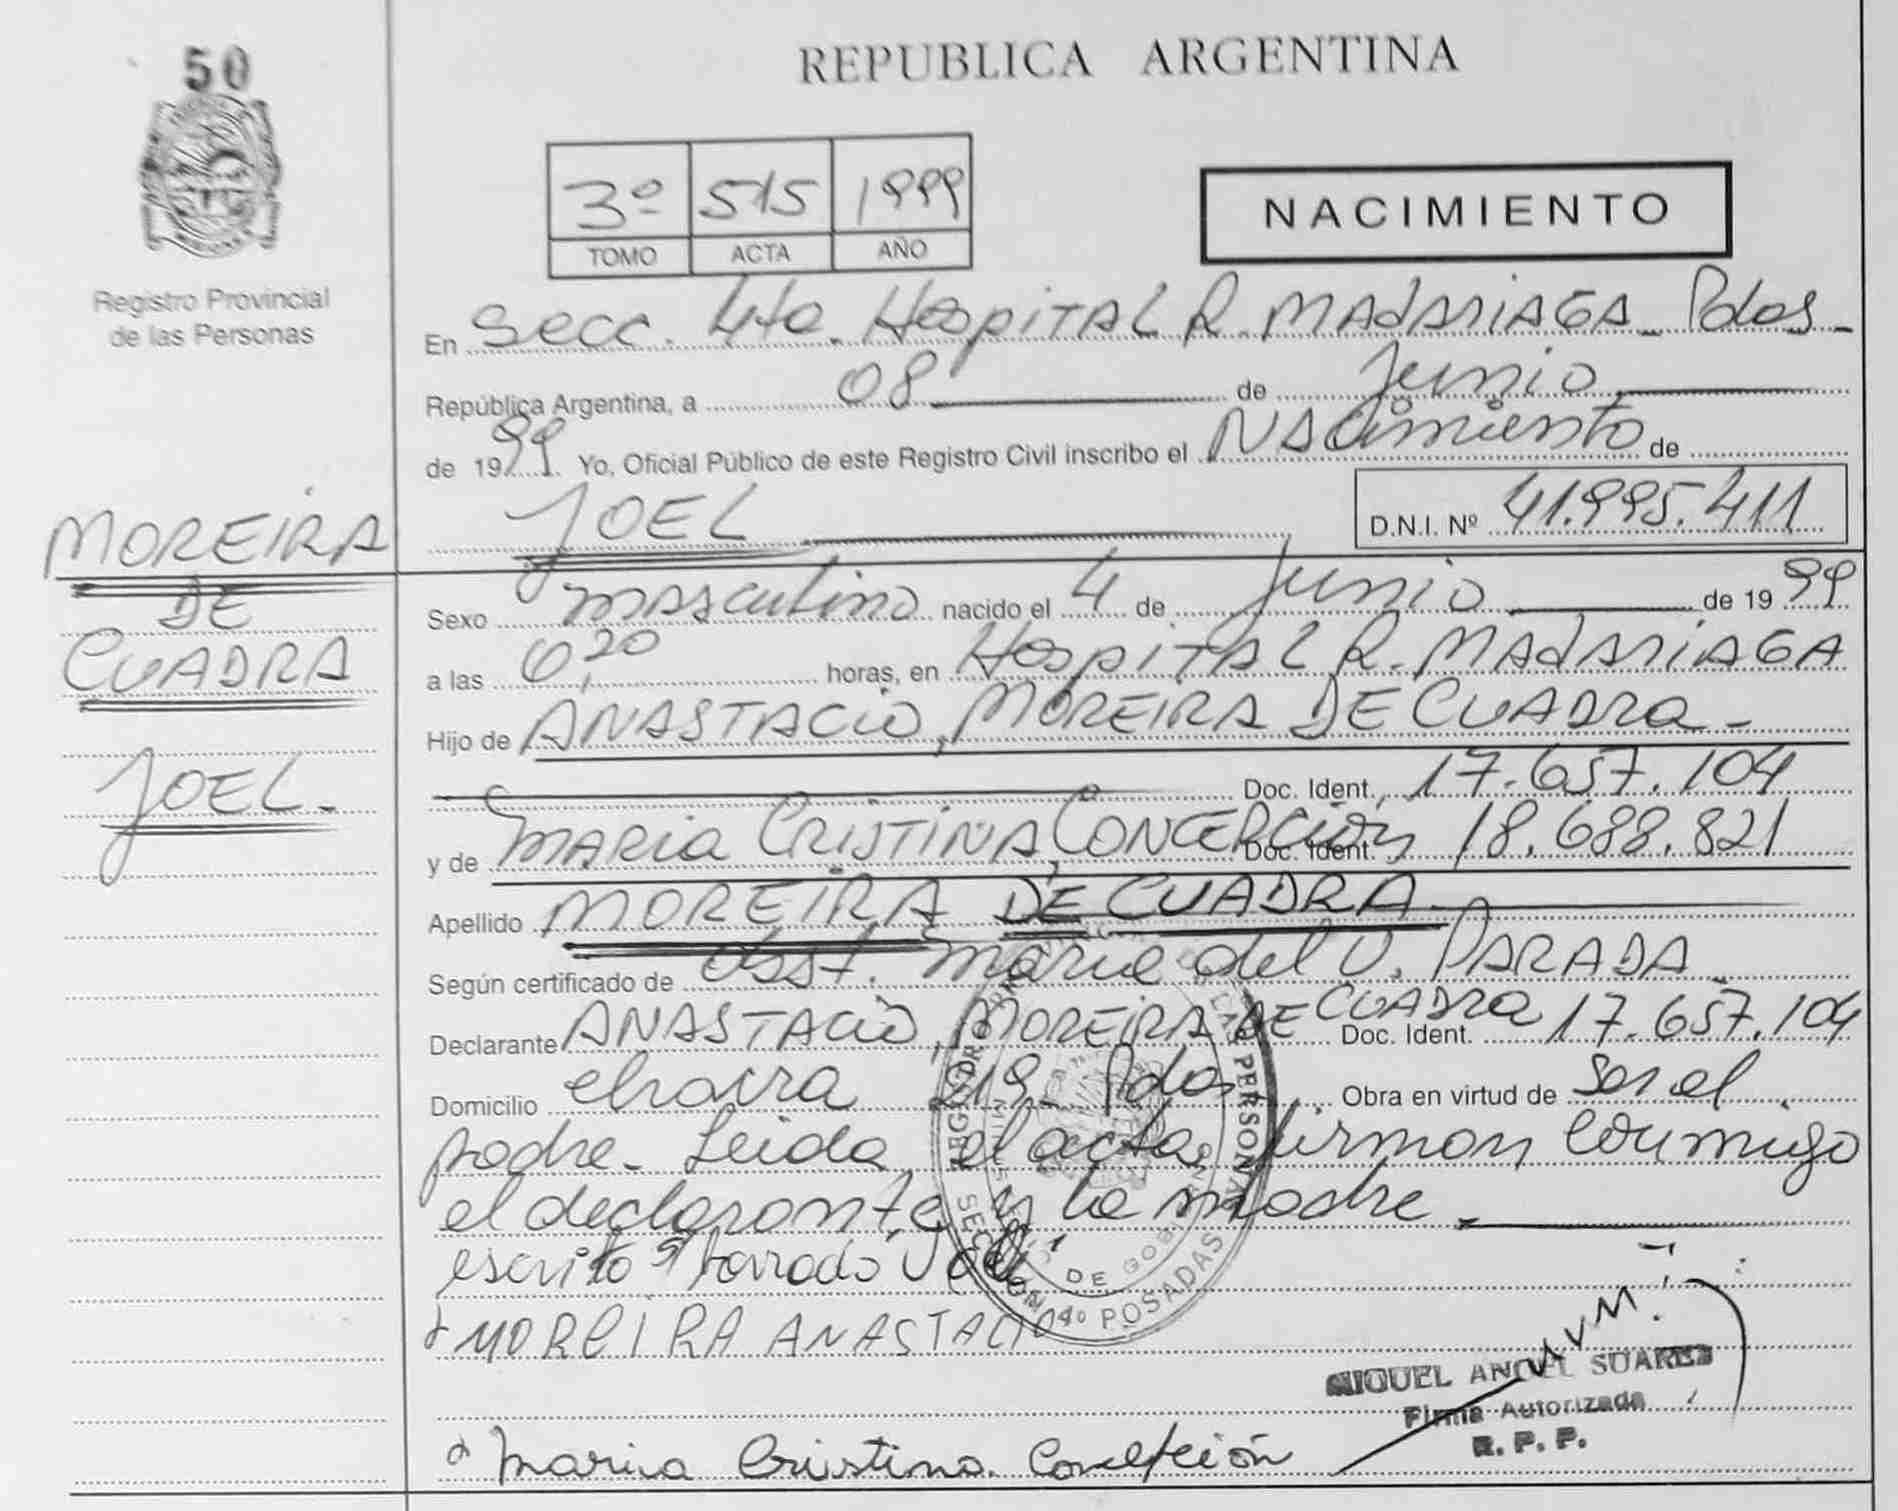 50
REPUBLICA ARGENTINA
3º 515 1999
TOMO ACTA AÑO
NACIMIENTO
Registro Provincial
de las Personas
En Secc. 4ta. Hospital R. Madariaga Pdas
República Argentina, a 08 de Junio
de 1999. Yo, Oficial Público de este Registro Civil inscribo el Nacimiento de
JOEL
D.N.I. Nº 41.995.411
MOREIRA
DE
CUADRA
JOEL.
Sexo masculino nacido el 4 de Junio de 1999
a las 6,20 horas, en Hospital R. Madariaga
Hijo de ANASTACIO, MOREIRA DE CUADRA
Doc. Ident. 17.657.104
y de MARIA CRISTINA, CONCEPCIÓN Doc. Ident. 18.688.821
Apellido MOREIRA DE CUADRA
Según certificado de Obst. Maria del V. PARADA
Declarante ANASTACIO, MOREIRA DE CUADRA Doc. Ident. 17.657.104
Domicilio 219 Pdas. Obra en virtud de ser el
padre. Leida el acta, firman conmigo
el declarante y la madre.
escrito s/ borrado
MOREIRA ANASTACIO
SECCION 4º POSADAS
MIGUEL ANGEL SUAREZ
Firma Autorizada
R. P. P.
Maria Cristina Concepción